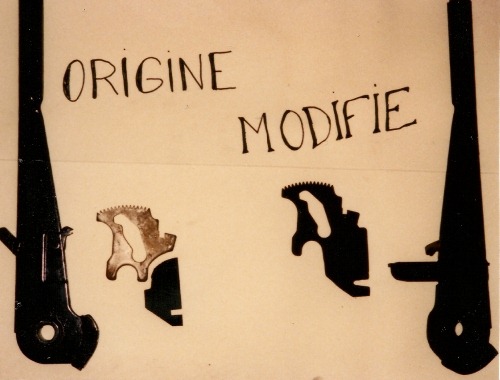 ORiGiNE
MODiFiE